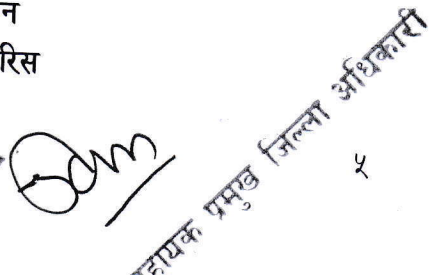 न
रिस
सहायक प्रमुख जिल्ला अधिकारी
५